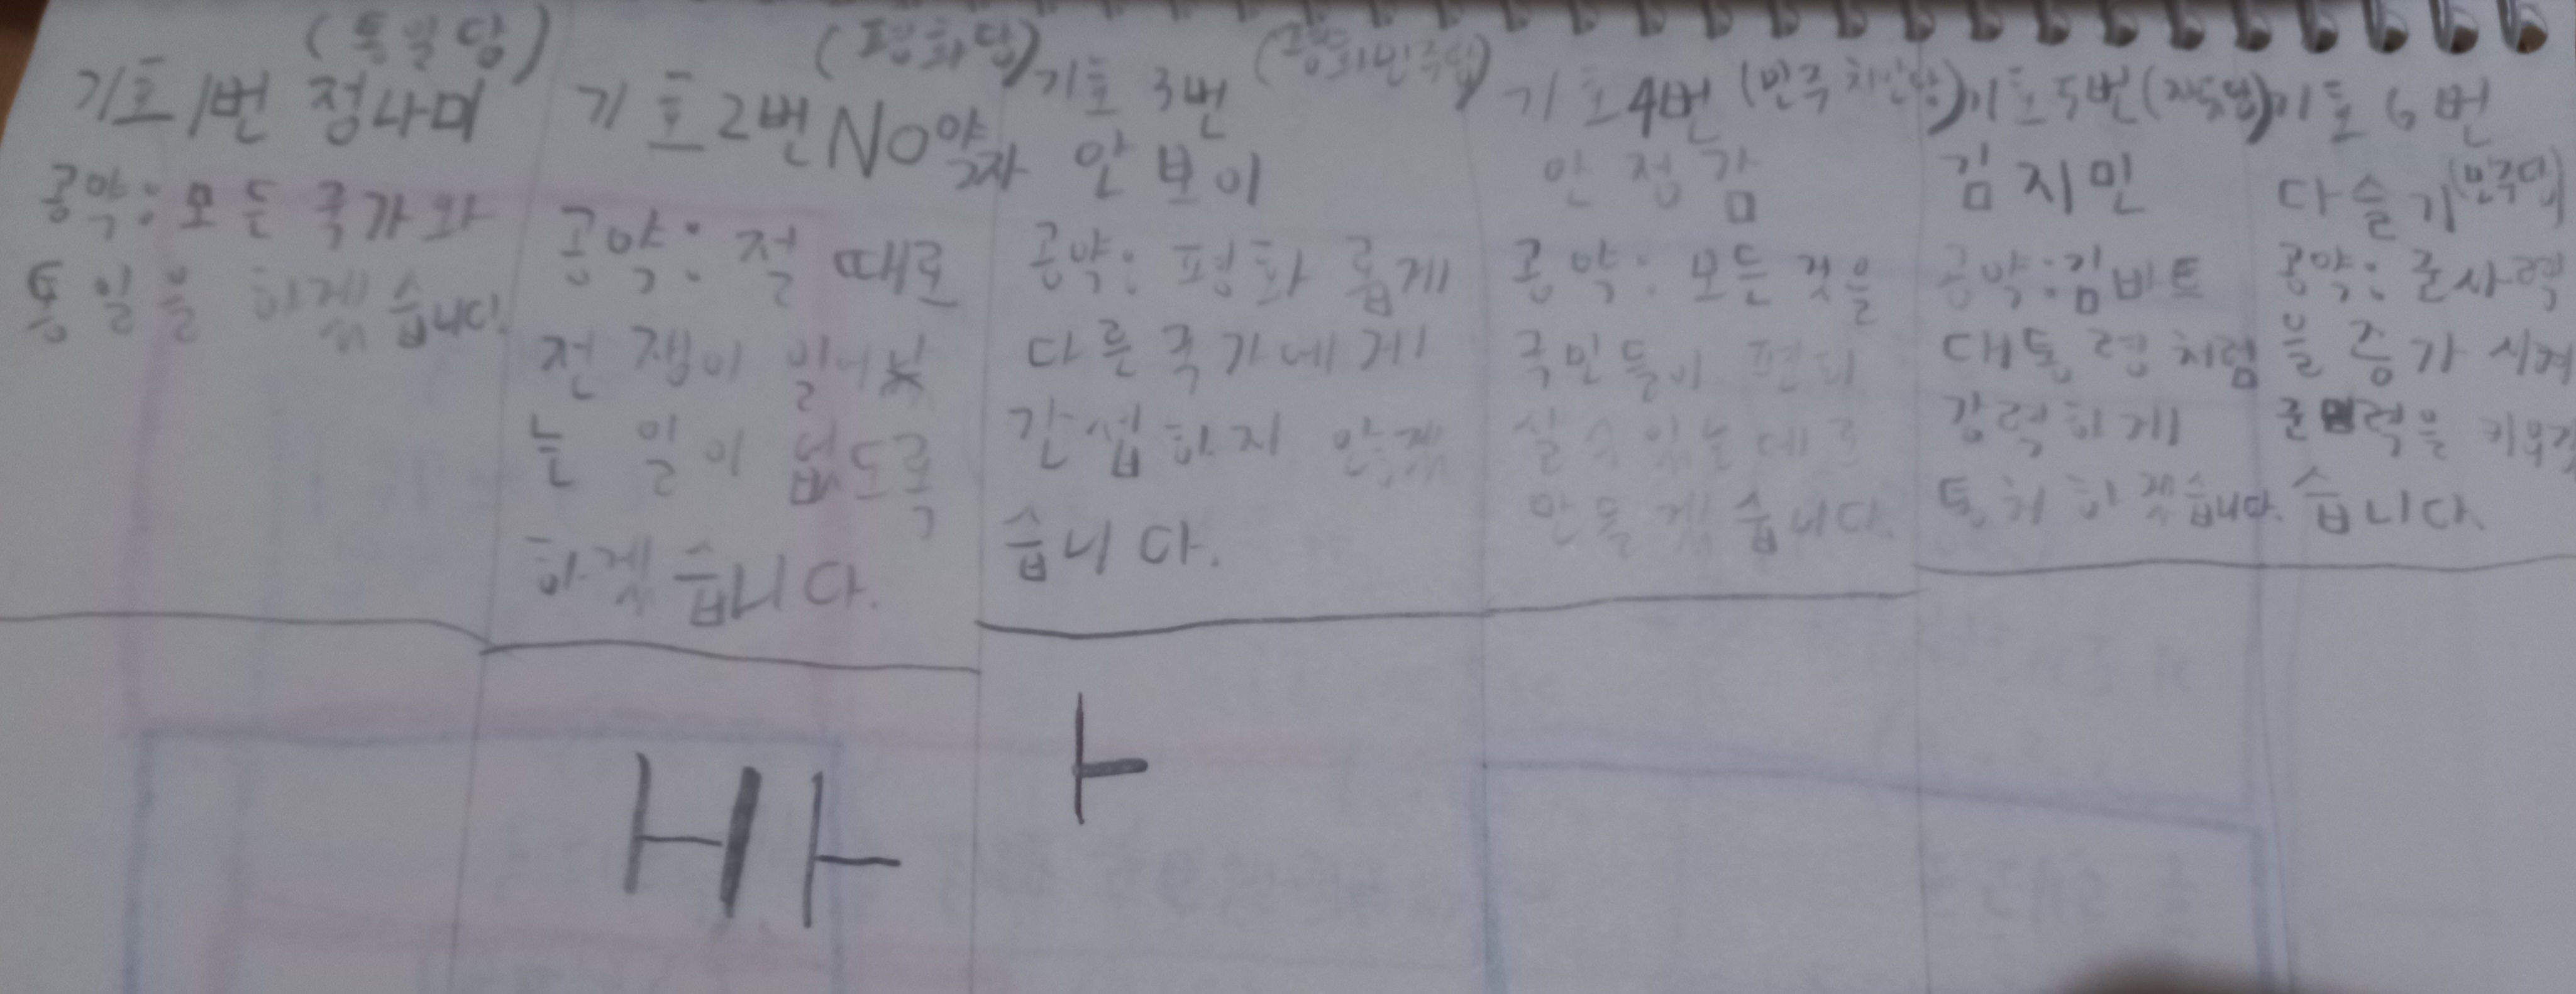 (통일당)
기호1번 정나미
공약: 모든 국가와
통일을 하겠습니다.
(평화당)
기호2번 No약자
공약: 절때로
전쟁이 일어낫
는 일이 없도록
하겠습니다.
(평화민주당)
기호 3번
안보이
공약: 평화롭게
다른국가에게
간섭하지 않겠
습니다.
기호4번 (민주치인당)
안정감
공약: 모든것을
국민들이 편히
살수있는데로
만들겠습니다.
기호5번(자동당)
김지민
공약:김비트
대통령처럼
강력하게
통치하겠습니다.
기호 6번
다슬기(민주당)
공약: 군사력
을 증가시켜
군력을 키우겠
습니다.